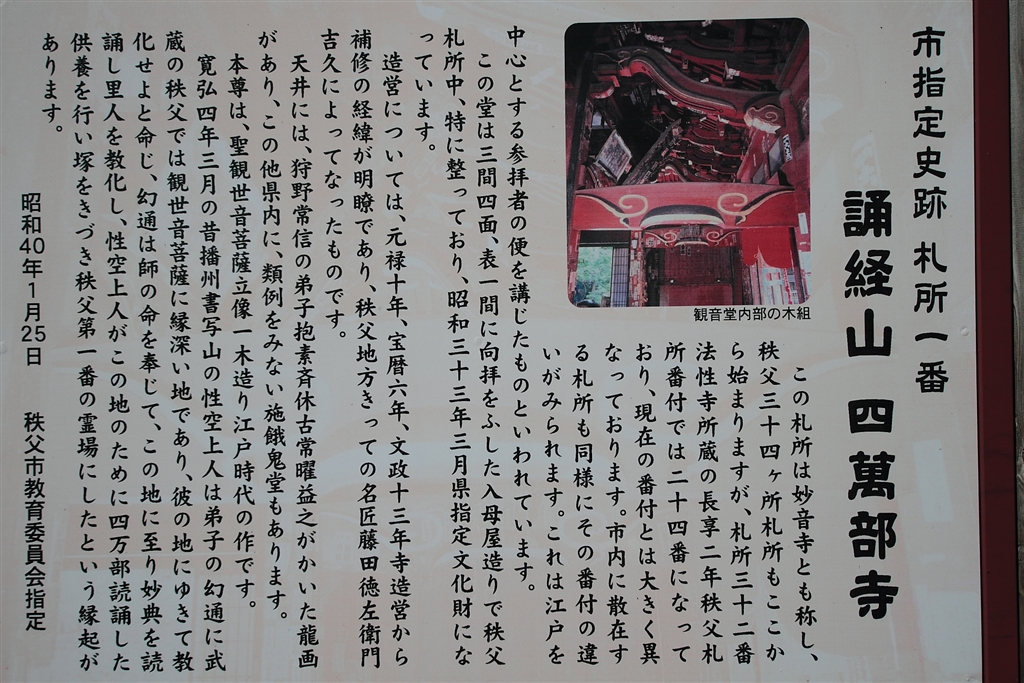 市指定史跡 札所一番
誦経山 四萬部寺
観音堂内部の木組
この札所は妙音寺とも称し、
秩父三十四ヶ所札所もここか
ら始まりますが、札所三十二番
法性寺所蔵の長享二年秩父札
所番付では二十四番になって
おり、現在の番付とは大きく異
なっております。市内に散在す
る札所も同様にその番付の違
いがみられます。これは江戸を
中心とする参拝者の便を講じたものといわれています。
この堂は三間四面、表一間に向拝をふした入母屋造りで秩父
札所中、特に整っており、昭和三十三年三月県指定文化財にな
っています。
造営については、元禄十年、宝暦六年、文政十三年寺造営から
補修の経緯が明瞭であり、秩父地方きっての名匠藤田徳左衛門
吉久によってなったものです。
天井には、狩野常信の弟子抱素斉休古常曜益之がかいた龍画
があり、この他県内に、類例をみない施餓鬼堂もあります。
本尊は、聖観世音菩薩立像一木造り江戸時代の作です。
寛弘四年三月の昔播州書写山の性空上人は弟子の幻通に武
蔵の秩父では観世音菩薩に縁深い地であり、彼の地にゆきて教
化せよと命じ、幻通は師の命を奉じて、この地に至り妙典を読
誦し里人を教化し、性空上人がこの地のために四万部読誦した
供養を行い塚をきづき秩父第一番の霊場にしたという縁起が
あります。
昭和40年1月25日 秩父市教育委員会指定